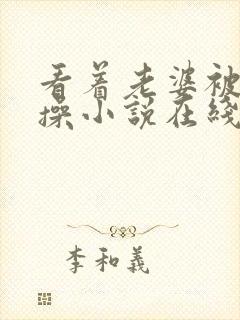 看着老婆被
操小説在綫
李和義